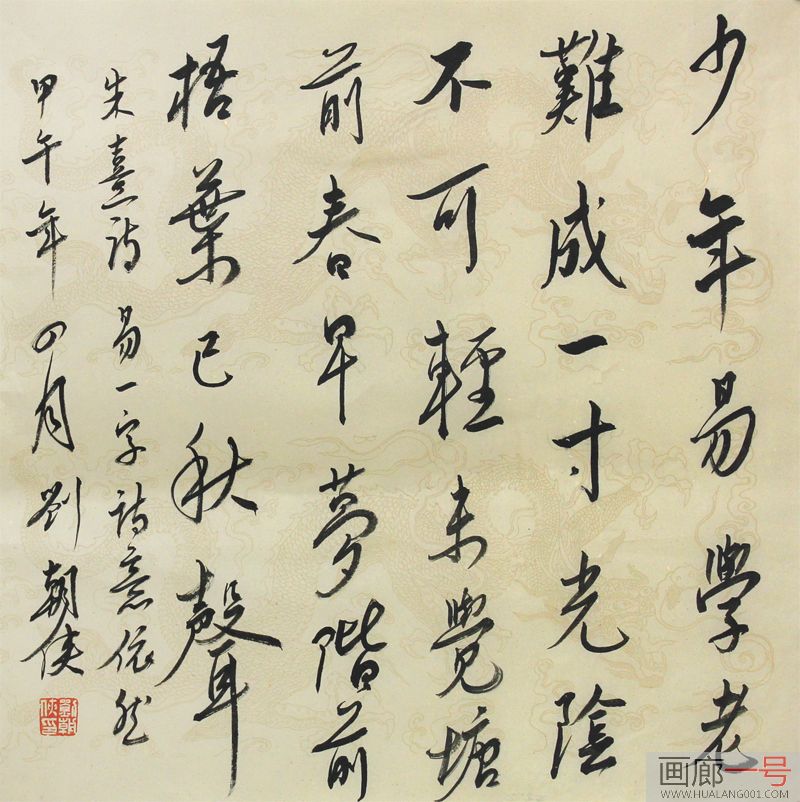 少年易學老
難成一寸光陰
不可輕未覺塘
前春早夢階前
梧葉已秋聲
朱熹詩易一字詩意依然
甲午年四月劉朝俠
劉朝俠印
画廊一号
WWW.HUALANG001.COM